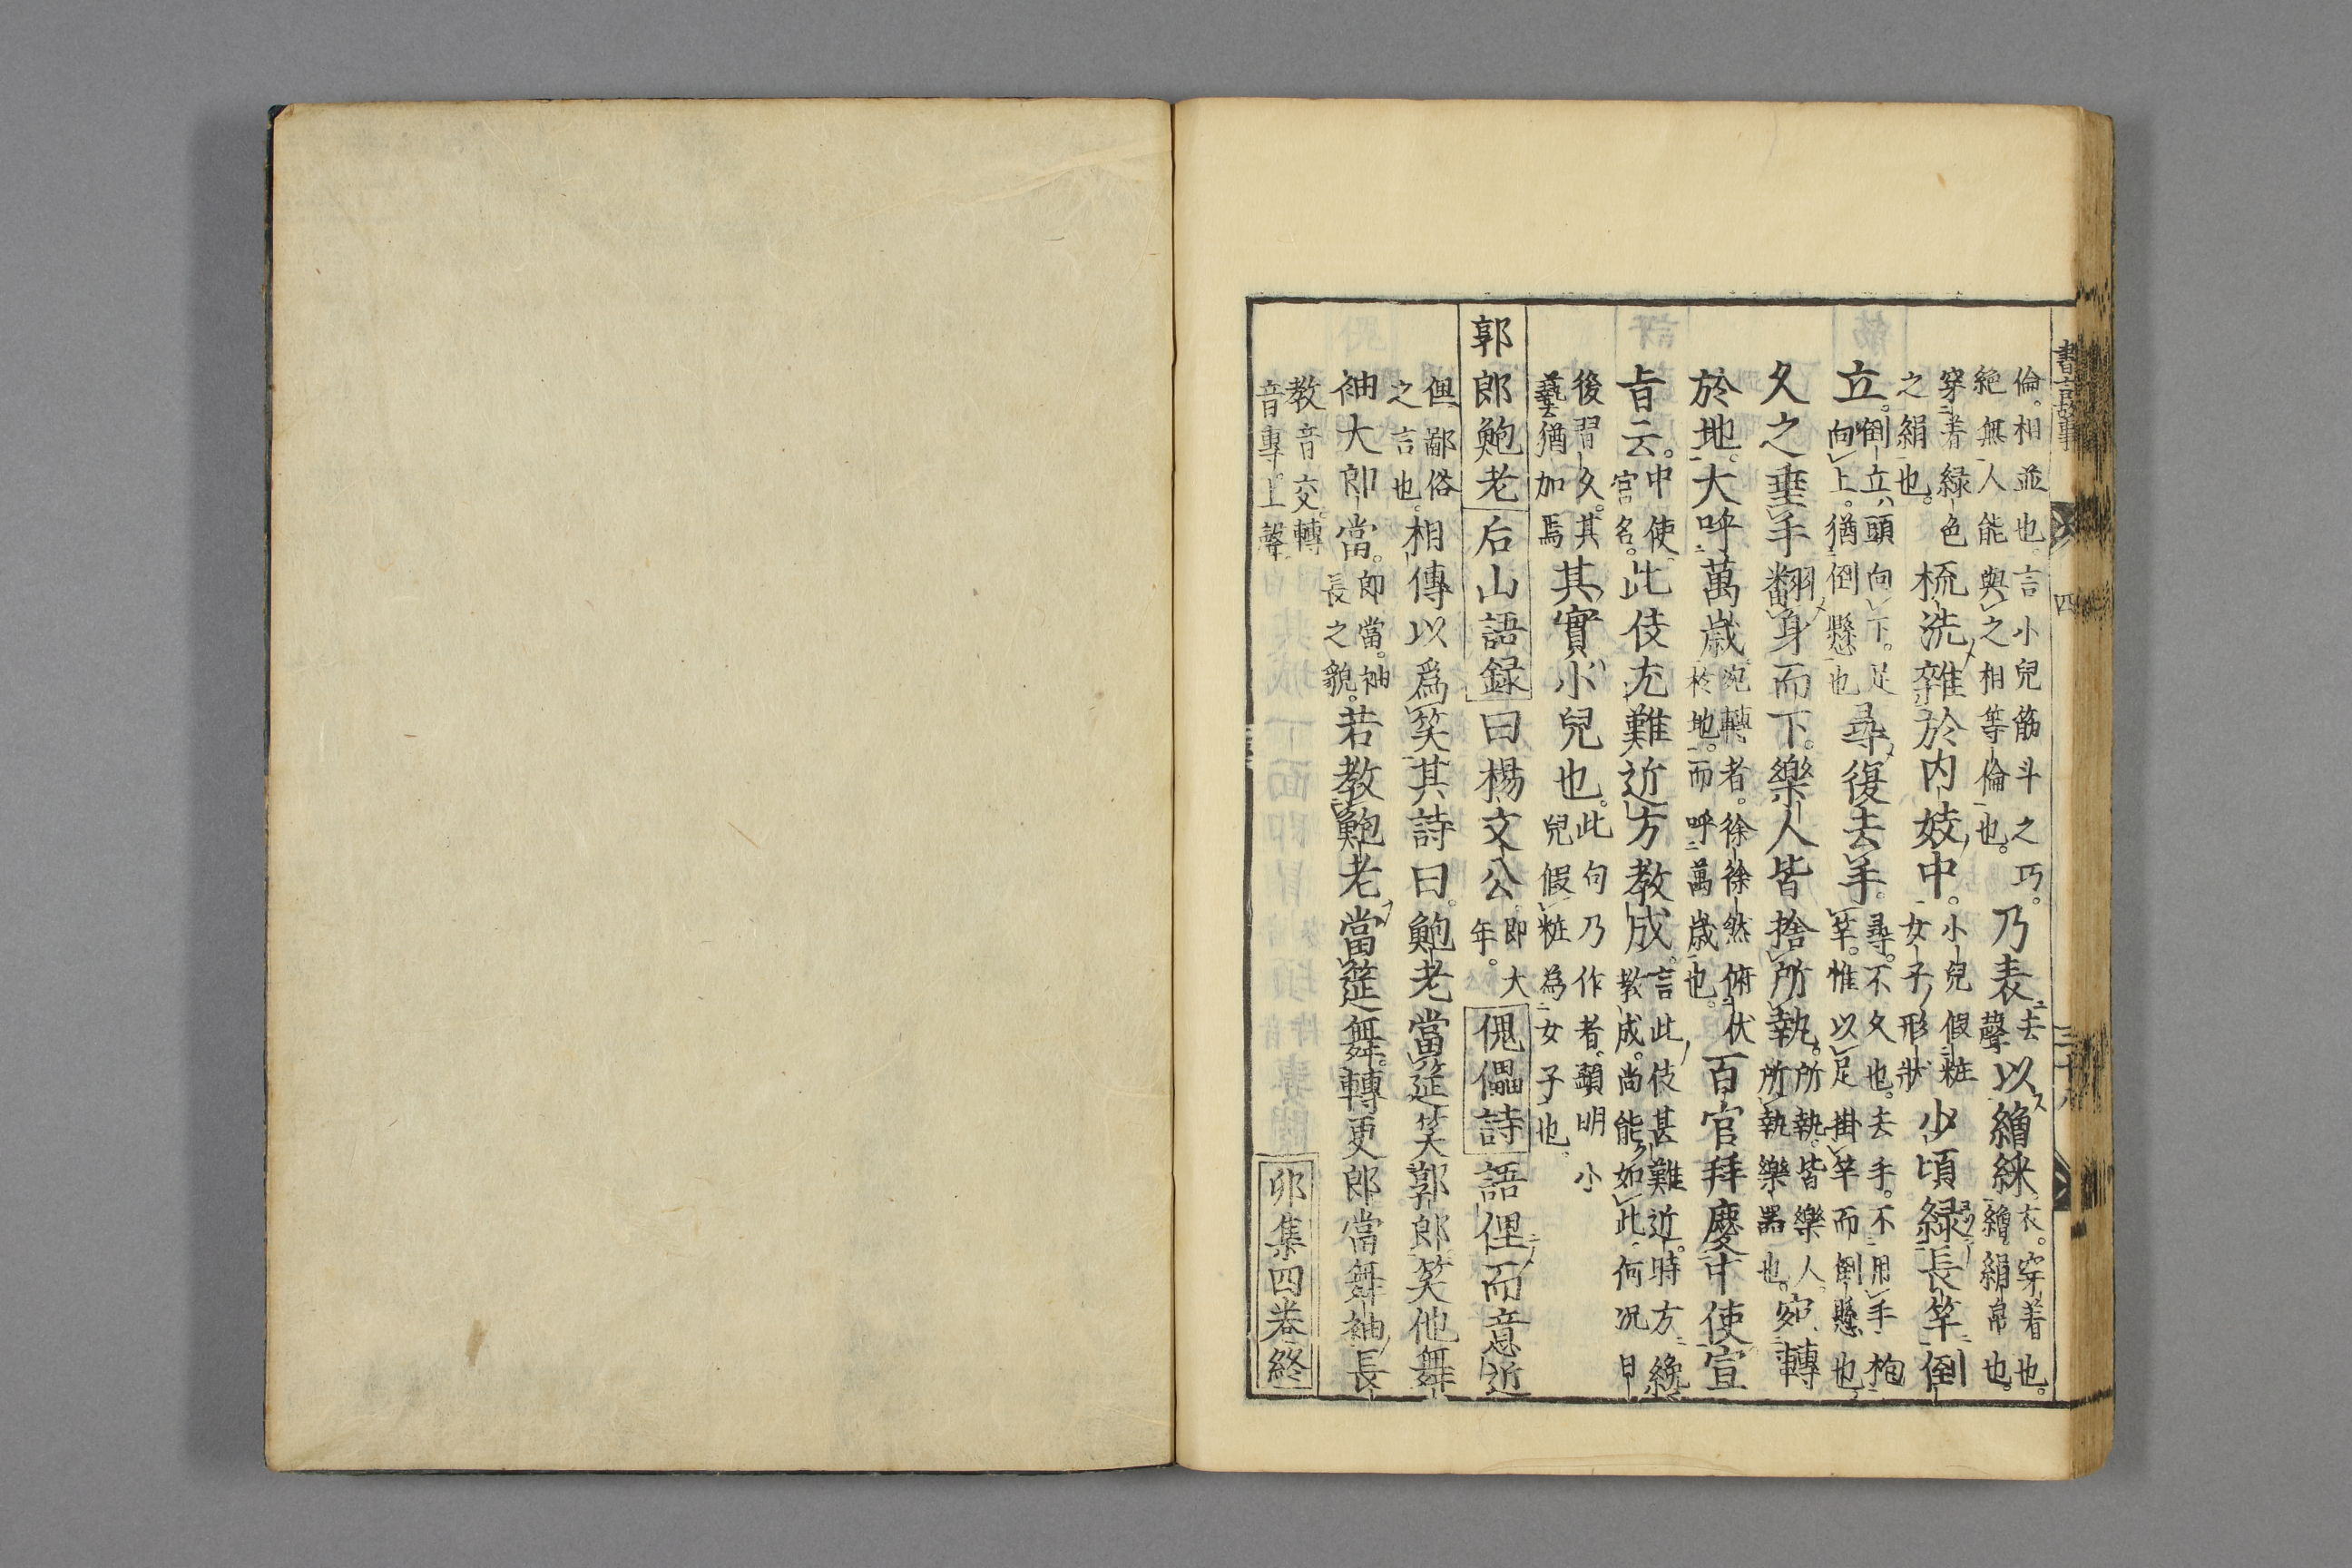 書言故事
四
三十八
倫。相並也。言小兒筋斗之巧。
絶無人能與之相等倫也。
乃衣去聲以繒綵衣。穿着也。
繒。絹帛也。
穿着緑色
之絹也。
梳洗雜於内妓中。小兒假粧
女子形狀
少頃緑長竿倒
立。倒立頭向下。足
向上。猶倒懸也
尋復去手。尋。不久也。去手。不用手抱
竿。惟以足掛竿而倒懸也
久之垂手翻身而下。樂人皆捨所執。所執。皆樂人
所執樂器也。
宛轉
於地。大呼萬歳。宛轉者。徐徐然俯伏
於地。而呼萬歳也。
百官拜慶中使宣
旨云。中使
官名。
此伎尤難近方教成。言此伎甚難近時方纔
教成。尚能如此何况日
後習久。其
藝猶加焉
其實小兒也。此句乃作者。顯明小
兒假粧為女子也。
郭郎鮑老
后山語録曰楊文公即大
年。
傀儡詩語俚而意近
俚鄙俗
之言也。
相傳以爲笑其詩曰。鮑老當筵笑郭郎笑他舞
袖大郎當。郎當。袖
長之貌。
若教鮑老當筵舞。轉更郎當舞袖長
教音交。轉
音專上聲
卯集四卷終